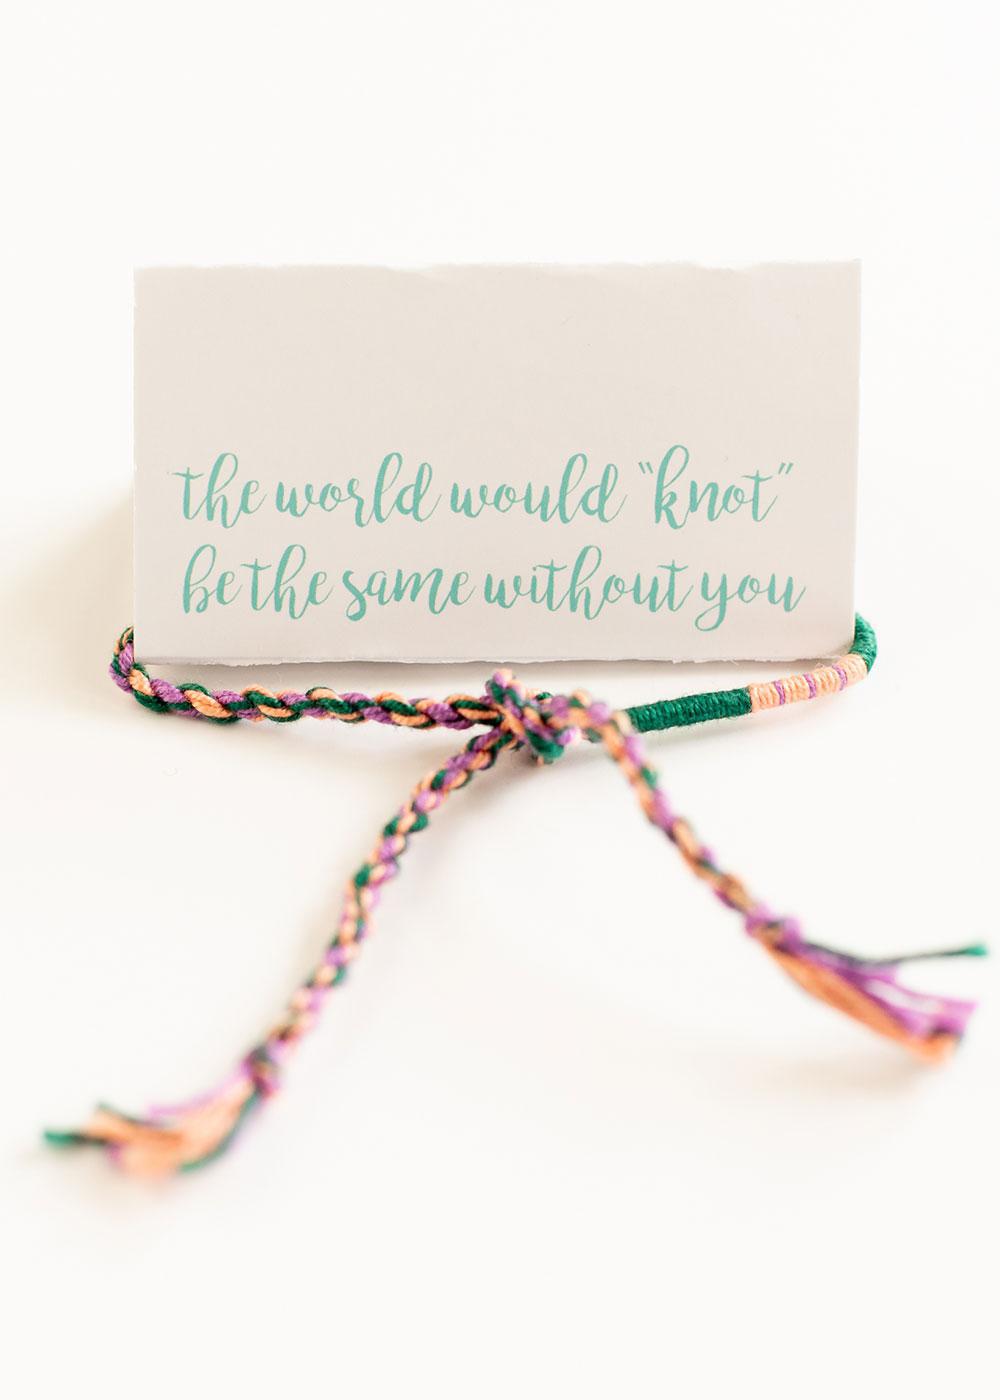 the world would "knot"
be the same without you